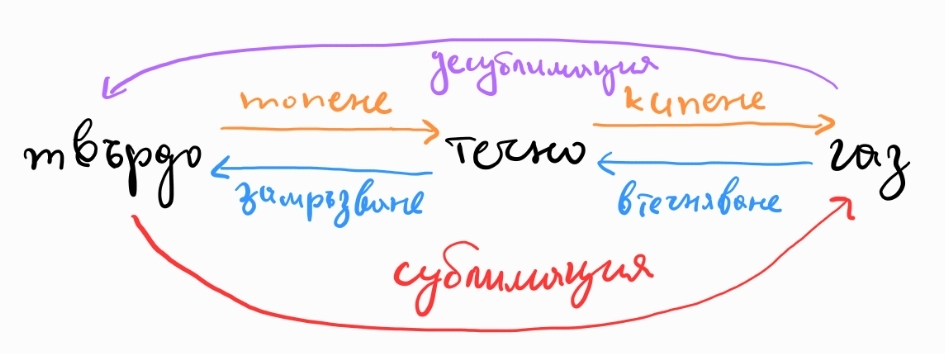 десублимация
топене
кипене
твърдо
течно
газ
замръзване
втечняване
сублимация